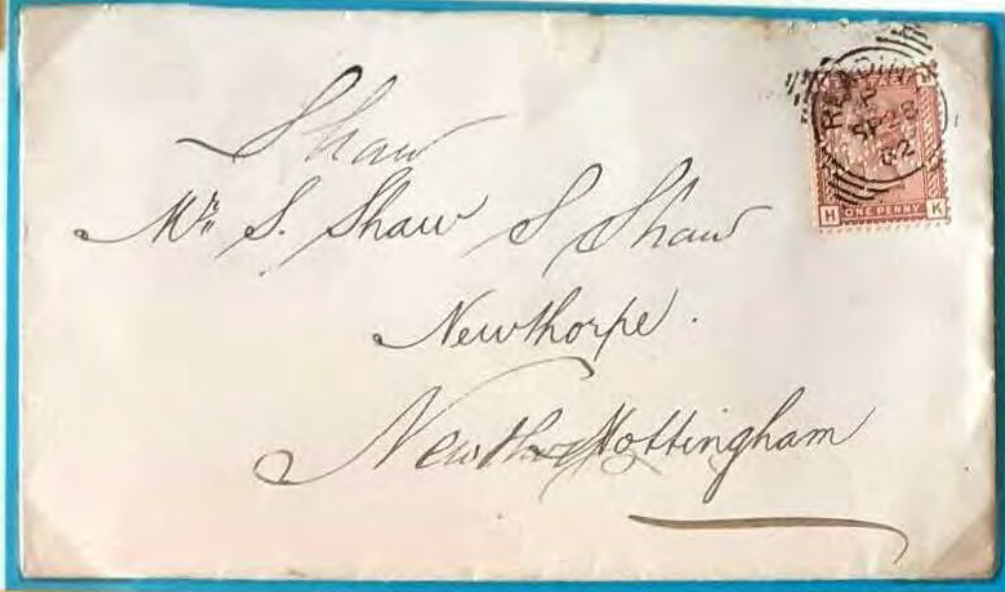 Shaw
Mr. S. Shaw S Shaw
Newthorpe.
Newthorpe Nottingham
READIN
SP 28
82
H ONE PENNY K